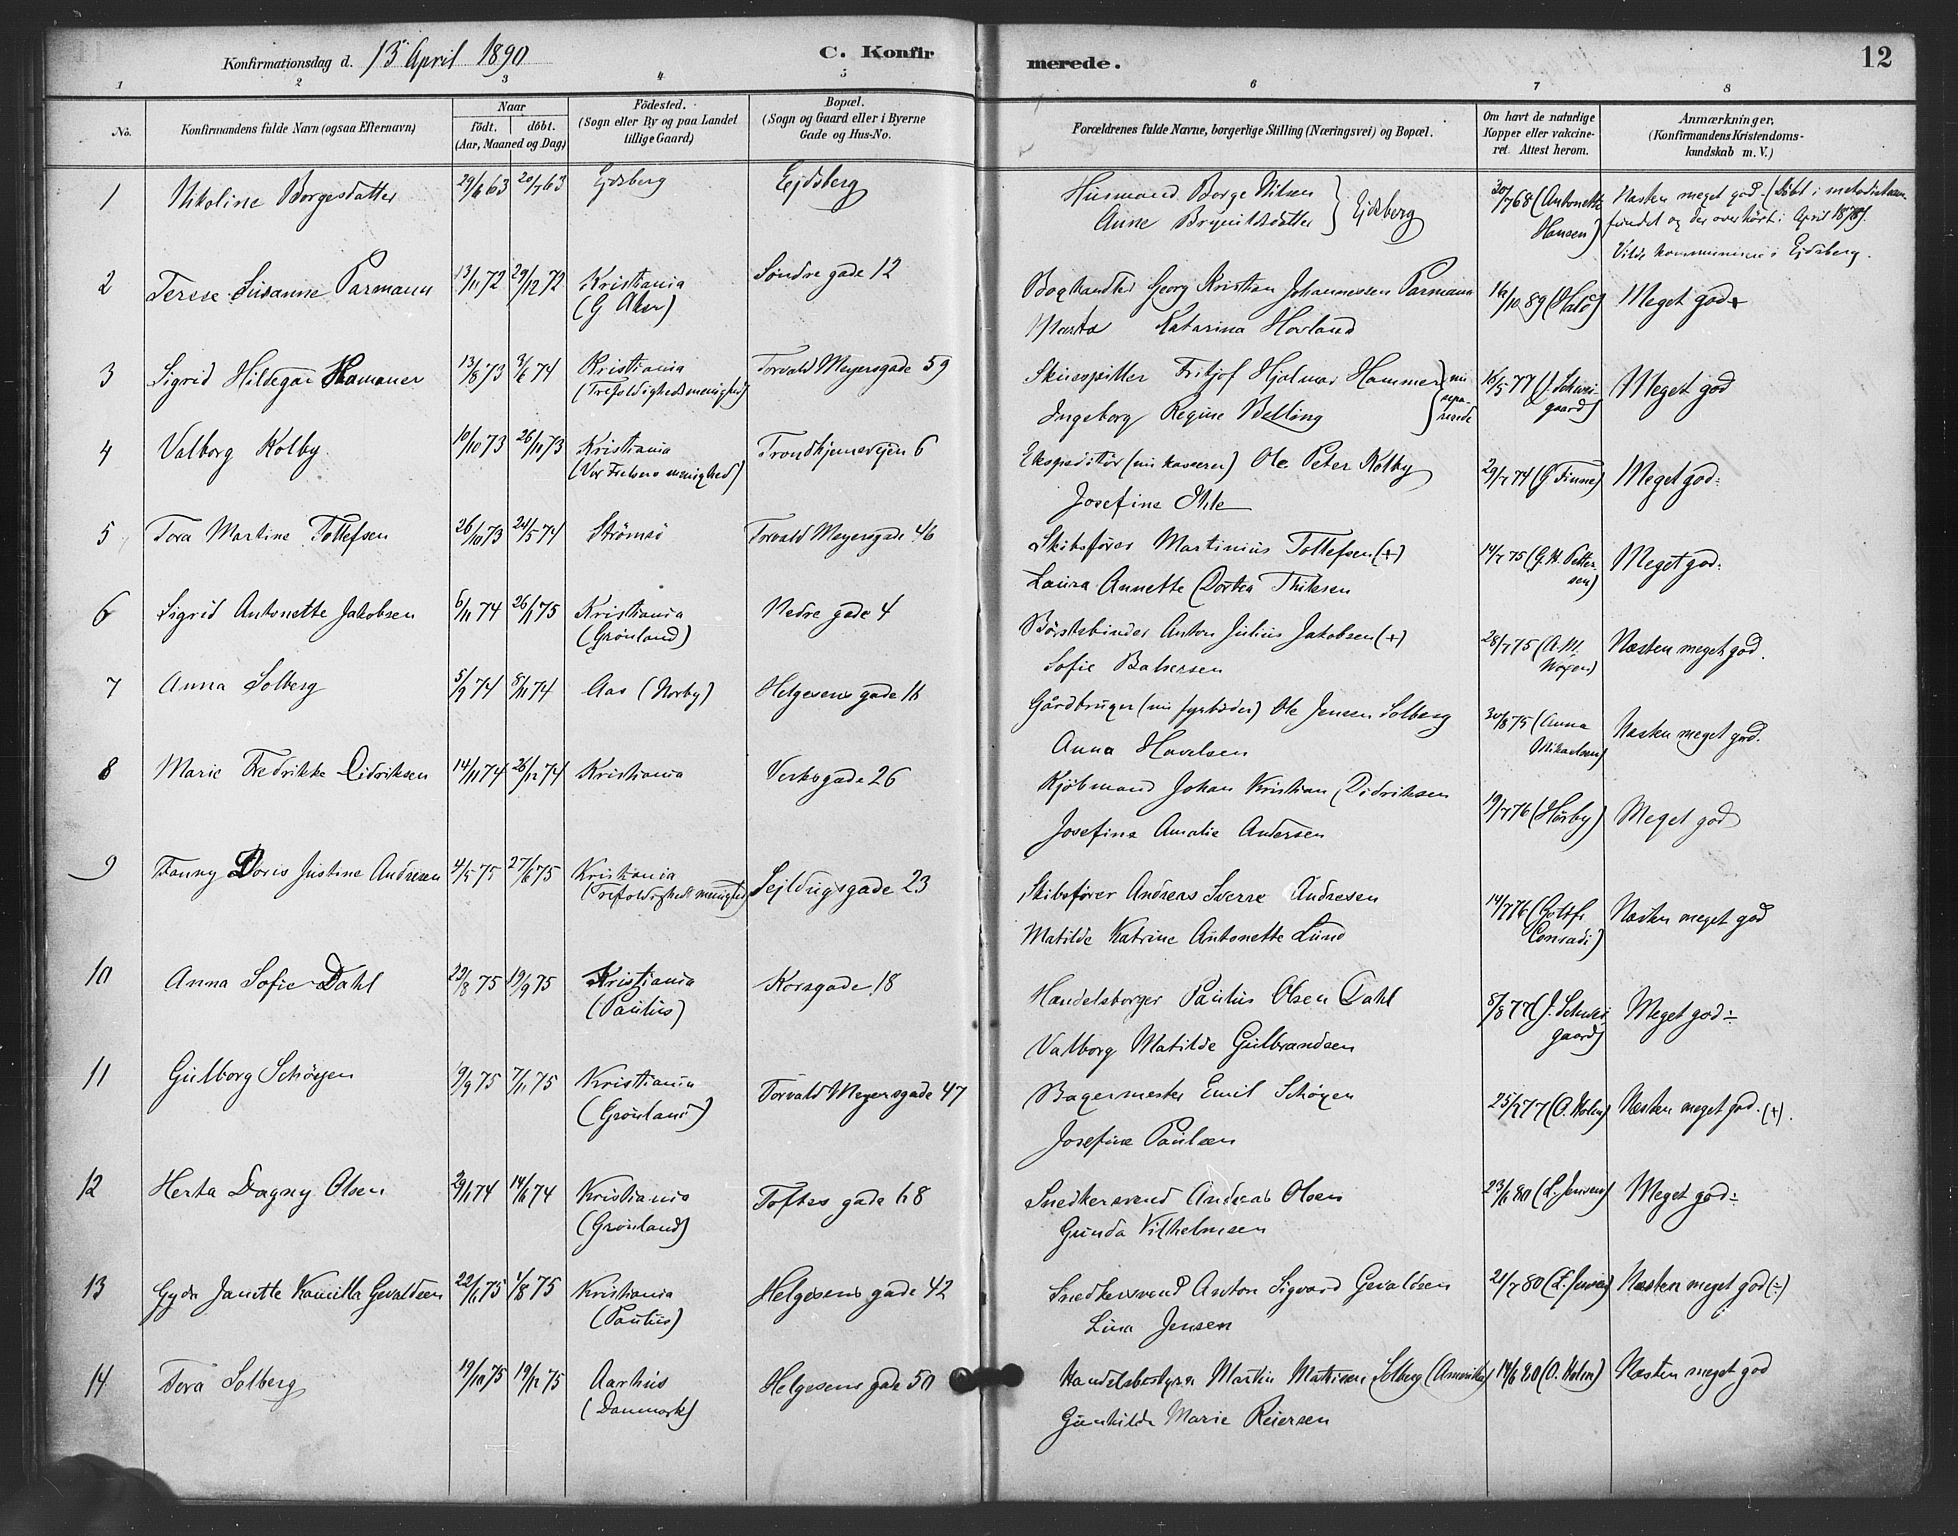 Konfirmationsdag d. 13 April 1890
C. Konfirmerede.
12
1 2 3 4 5 6 7 8
No.
Konfirmandens fulde Navn (ogsaa Efternavn)
Naar
födt. döbt.
(Aar, Maaned og Dag)
Födested.
(Sogn eller By og paa Landet
tillige Gaard)
Bopæl.
(Sogn og Gaard eller i Byerne
Gade og Hus-No.
Forældrenes fulde Navne, borgerlige Stilling (Næringsvei) og Bopæl.
Om havt de naturlige
Kopper eller vakcine-
ret. Attest herom.
Anmærkninger,
(Konfirmandens Kristendoms-
kundskab m. V.)
1 Nikoline Borgesdatter 29/6 63 20/7 63 Ejdsberg Ejdsberg
Husmand Borge Nilsen
Anne Brynildsdatter } Ejdsberg
30/7 68 (Antonette
Hansen)
Næsten meget god. (Döbt i metodistsam-
fundet og der overhört i April 1878).
Vilde kommunicere i Ejdsberg.
2 Terese Susanne Parmann 13/11 72 29/12 72 Kristiania
(G Aker)
Søndre gade 12
Boghandler Georg Kristian Johannessen Parmann
Marta Katarina Hovland
16/10 89 (Hald)
Meget god+
3 Sigrid Hildegar Hammer 13/8 73 3/6 74 Kristiania
(Trefoldighedsmenighed)
Torvald Meyersgade 59
Fritjof Hjalmar Hammer
Ingeborg Regine Belling } nu
sepa-
rerede
16/5 77 (J. Schwei-
gaard)
Meget god
4 Valborg Kolby 10/10 73 26/11 73 Kristiania
(Vor Frelsers menighed)
Trondhjemsvejen 6
Ekspeditör (nu kasserer) Ole Peter Kolby
Josefine Ihle
29/7 74 (G Finne)
Meget god÷
5 Tora Martine Tollefsen 26/10 73 24/5 74 Strömsö
Torvald Meyersgade 46
Skibsfører Martinius Tollefsen (+)
Laura Annette Dortea Thiksen
14/7 75 (G. H. Petter-
sen)
Meget god÷
6 Sigrid Antonette Jakobsen 6/11 74 26/1 75 Kristiania
(Grönland)
Nedre gade 4
Börstebinder Anton Julius Jakobsen (+)
Sofie Balsersen
28/7 75 (A. M.
Mogen)
Næsten meget god.
7 Anna Solberg 5/9 74 8/11 74 Aas (Norby)
Helgesens gade 16
Gårdbruger (nu fyrböder) Ole Jensen Solberg
Anna Havelsen
30/8 75 (Anna
Mikaelsen)
Næsten meget god.
8 Marie Fredrikke Didriksen 14/11 74 26/12 74 Kristiania
Verksgade 26
Kjöbmand Johan Kristian Didriksen
Josefine Amalie Andersen
19/7 76 (Hörby)
Meget god
9 Fanny Doris Justine Andresen 4/5 75 27/6 75 Kristiania
(Trefoldigheds menighed)
Sejldugsgade 23
Skibsfører Andreas Sverre Andresen
Matilde Katrine Antonette Lund
14/7 76 (Gotfr.
Conradi)
Næsten meget god
10 Anna Sofie Dahl 22/8 75 19/9 75 Kristiania
(Paulus)
Korsgade 18
Handelsborger Paulus Olsen Dahl
Valborg Matilde Gulbrandsen
8/8 77 (J. Schwei-
gaard)
Meget god÷
11 Gulborg Schöyen 9/9 75 7/11 75 Kristiania
(Grönland)
Torvald Meyersgade 47
Bagermester Emil Schöyen
Josefine Paulsen
25/7 77 (O. Holm)
Næsten meget god. (+).
12 Herta Dagny Olsen 29/1 74 14/6 74 Kristiania
(Grönland)
Toftes gade 68
Snedkersvend Andreas Olsen
Gunda Vilhelmsen
23/6 80 (L. Jensen)
Meget god÷
13 Gyda Janette Kamilla Gevaldsen 22/6 75 1/8 75 Kristiania
(Paulus)
Helgesens gade 42
Snedkersvend Anton Sigvard Gevaldsen
Lina Jensen
21/7 80 (L. Jensen)
Næsten meget god (÷)
14 Tora Solberg 19/10 75 19/12 75 Aarhus
(Danmark)
Helgesens gade 50
Handelsbestyrer Martin Mathisen Solberg (Amerika)
Gunhilda Marie Reiersen
14/6 80 (O. Holm)
Næsten meget god